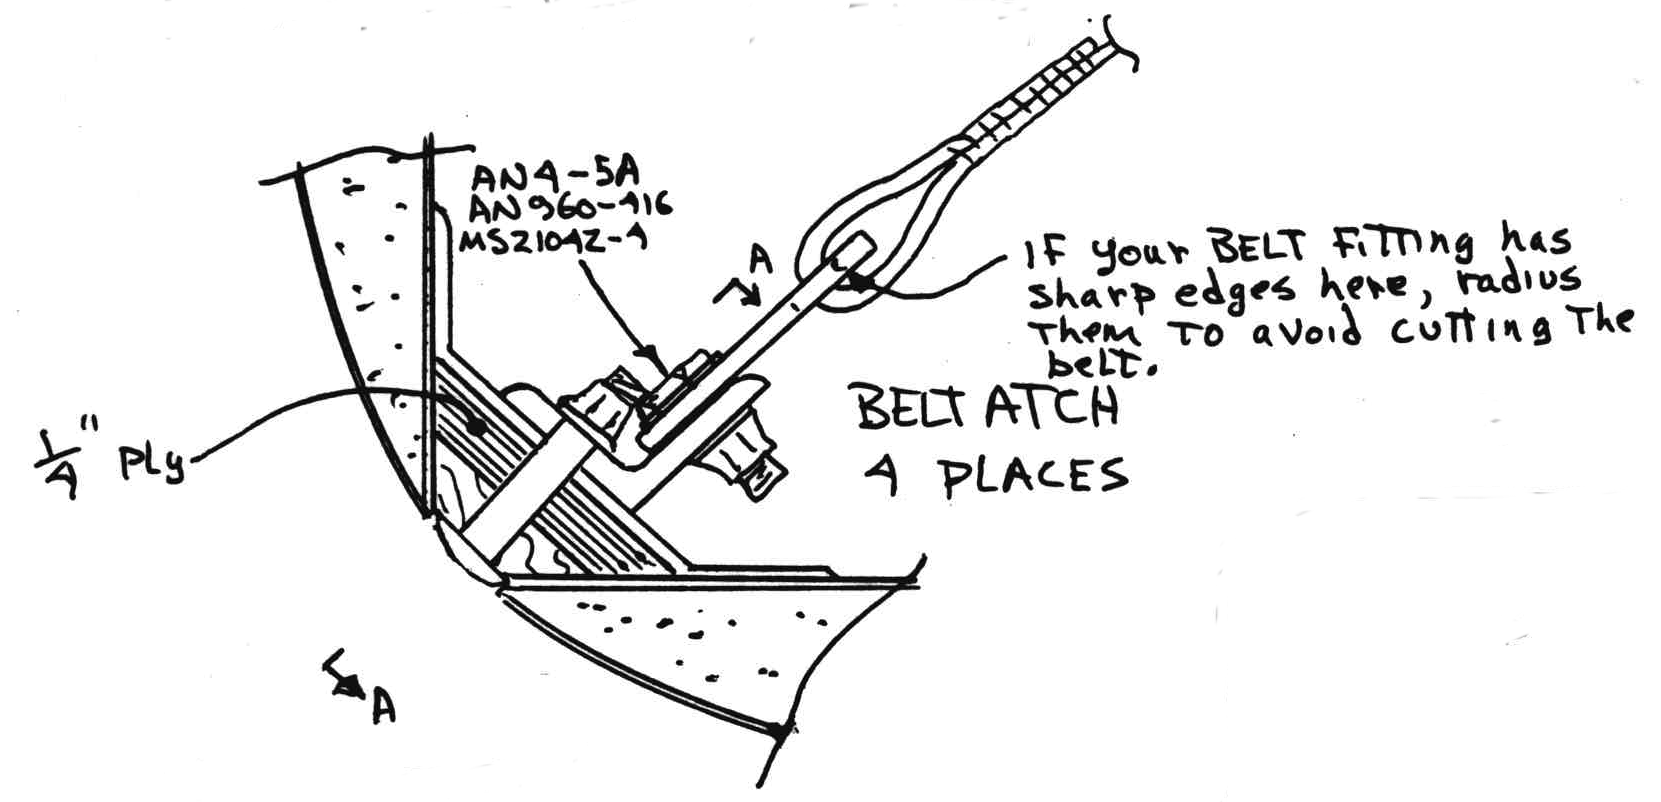 AN4-5A
AN960-416
MS21042-4
A
IF your BELT FiTTing has
sharp edges here, radius
Them To avoid cutting The
belt.
BELT ATCH
4 PLACES
1/4" Ply
A